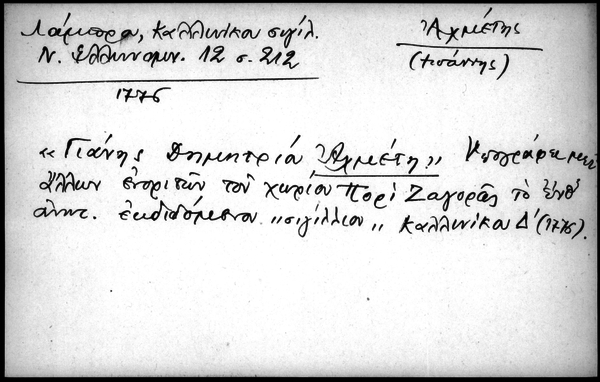 Λάμπρου, Καλλινίκου σιγίλ.
Ν. Ἑλληνομν. 12 σ. 212
1776
Ἀχμέτης
(Ἰωάννης)
«Γιάνης Δημητρίου Ἀχμέτη» Ὑπογράφει μετ'
ἄλλων ἐνοριτῶν τοῦ χωρίου Πορὶ Ζαγορᾶς τὸ
ἐκδιδόμενον "σιγίλλιον" Καλλινίκου Δ' (1776).